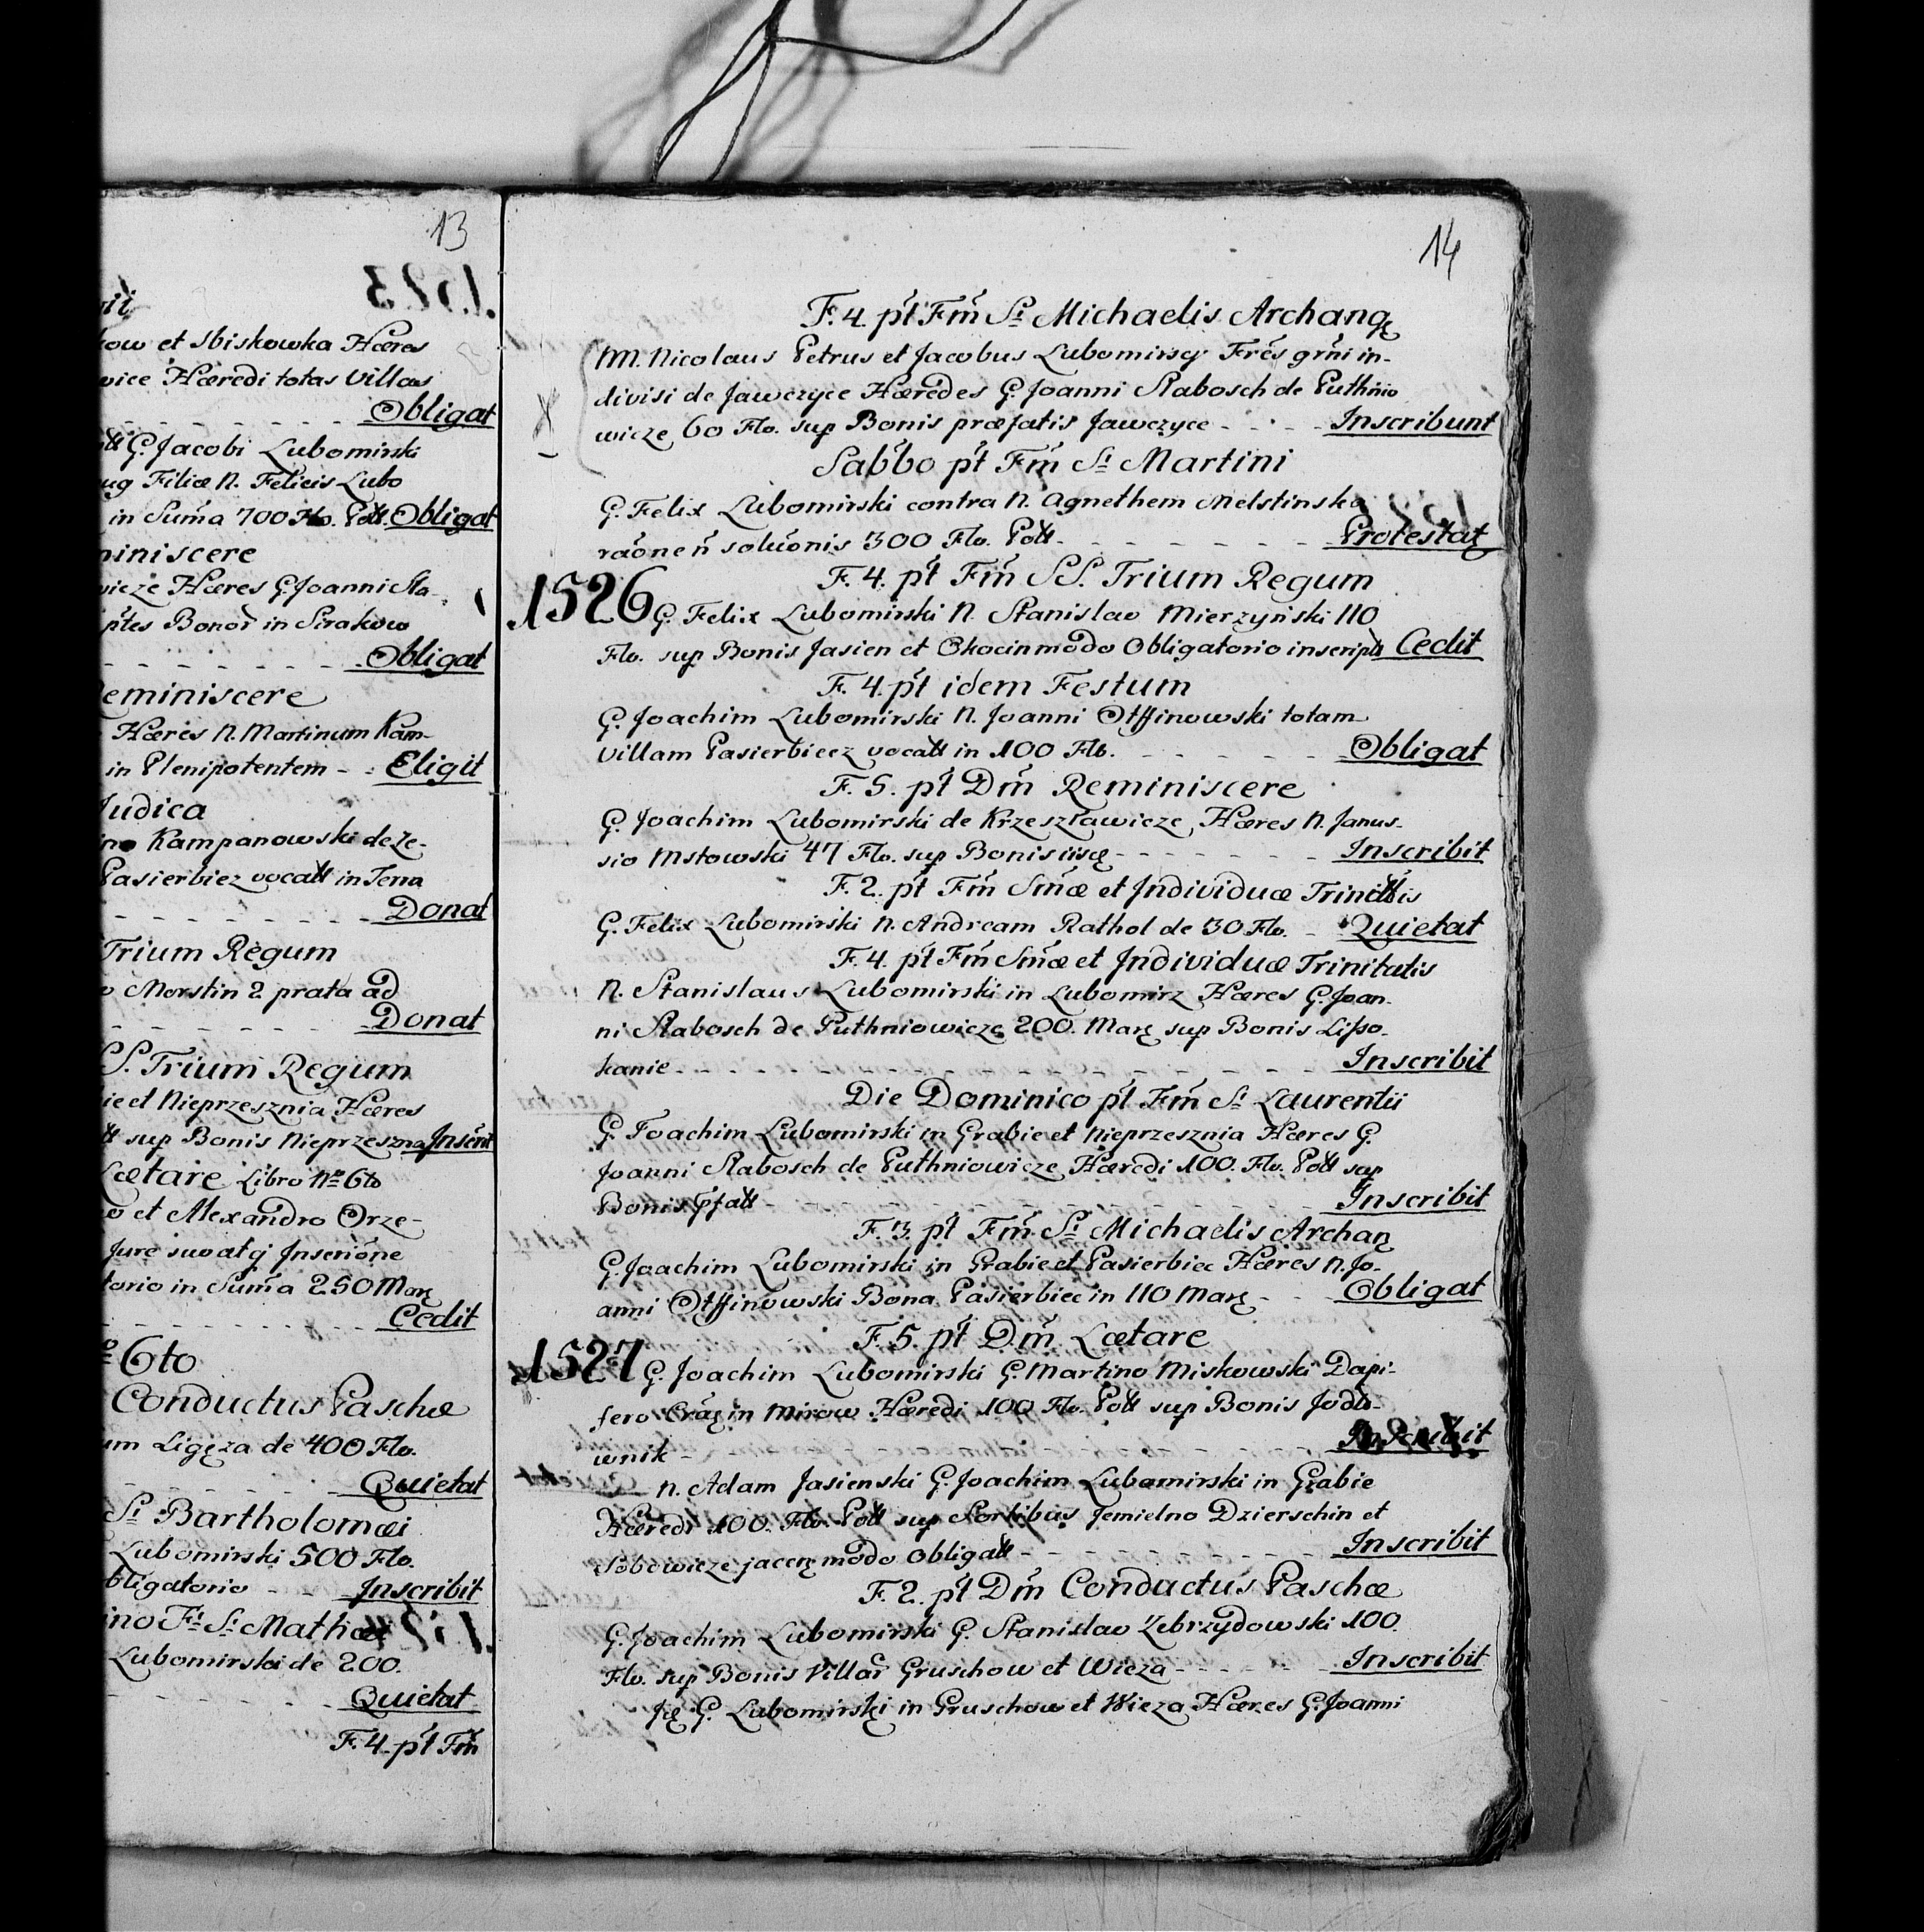 13
1523
nii
kow et Sbiskowka Hæres
wice Hæredi totas Villas
Obligat
G. Jacobi Lubomirski
ug Filiæ N. Felicis Lubo
in Sum̃a 700 Flo. Poll. Obligat
miniscere
wicze Hæres G. Joanni Sla-
ptes Bonor in Sirakow
Obligat
Reminiscere
Hæres N. Martinum Kam-
in Plenipotentem - - Eligit
Judica
ino Kampanowski de Ze-
Pasierbiez vocatt in Terra
Donat
Trium Regum
o Morstin 2 prata ad
Donat
S. Trium Regum
ie et Nieprzesznia Hæres
tt sup Bonis Nieprzeszna Inserit
Lætare Libro Nro 6to
o et Alexandro Orze-
Jure suo atq Inscrione
torio in Sum̃a 250 Marę
Cedit
6to
Conductus Paschæ
um Ligęza de 400 Flo.
Quietat
St Bartholomæi
Lubomirski 500 Flo.
bligatorio - - Inscribit
ino Fi Si Mathæi
Lubomirski de 200.
Quietat
F. 4. pt Fm̃
14
F. 4. pt Fm̃ Si Michaelis Archang
NN. Nicolaus Petrus et Jacobus Lubomirscy Fres grni in-
divisi de Jawczyce Hæredes G. Joanni Slabosch de Puthnio
wicze 60 Flo. sup Bonis præfatis Jawczyce - - - Inscribunt
Sabbo pt Fm̃ Si Martini
G. Felix Lubomirski contra N. Agnethem Melstinska
raone ñ soluonis 300 Flo. Poll - - - Protestat
F. 4. pt Fm̃ SS. Trium Regum
1526 G. Felix Lubomirski N. Stanislao Mierzyński 110
Flo. sup Bonis Jasien et Okocin modo Obligatorio inscript Cedit
F. 4. pt idem Festum
G. Joachim Lubomirski N. Joanni Otffinowski totam
Villam Pasierbiecz vocatt in 100 Flo. - - - Obligat
F. 5. pt Dm̃ Reminiscere
G. Joachim Lubomirski de Krzeszławicze Hæres N. Janus-
sio Mstowski 47 Flo. sup Bonis iisę - - - Inscribit
F. 2. pt Fm̃ Sm̃æ et Individuæ Trinittis
G. Felix Lubomirski N. Andream Rathol de 30 Flo. - Quietat
F. 4. pt Fm̃ Sm̃æ et Individuæ Trinitatis
N. Stanislaus Lubomirski in Lubomirz Hæres G. Joan-
ni Slabosch de Puthniowicze 200. Marę sup Bonis Lisso-
kanie - - - Inscribit
Die Dominico pt Fm̃ Si Laurentii
G. Joachim Lubomirski in Grabie et Nieprzesznia Hæres G.
Joanni Slabosch de Puthniowicze Hæredi 100. Flo. Poll sup
Bonis pfatt - - - Inscribit
F. 3. pt Fm̃ Si Michaelis Archan
G. Joachim Lubomirski in Grabie et Pasierbiec Hæres N. Jo-
anni Otffinowski Bona Pasierbiec in 110 Marę - - Obligat
F. 5. pt Dm̃ Lætare
1527 G. Joachim Lubomirski G. Martino Miskowski Dapi-
fero Crać in Mirow Hæredi 100 Flo. Poll sup Bonis Jodło-
wnik - - - Inscribit
N. Adam Jasienski G. Joachim Lubomirski in Grabie
Hæredi 100. Flo. Poll sup Sortibus Jemielno Dzierschin et
Sobowicze jaceę modo Obligatt - - - Inscribit
F. 2. pt Dm̃ Conductus Paschæ
G. Joachim Lubomirski G. Stanislao Zebrzydowski 100.
Flo. sup Bonis Villar Gruschow et Wieza - - - Inscribit
G. Lubomirski in Gruschow et Wieza Hæres G. Joanni